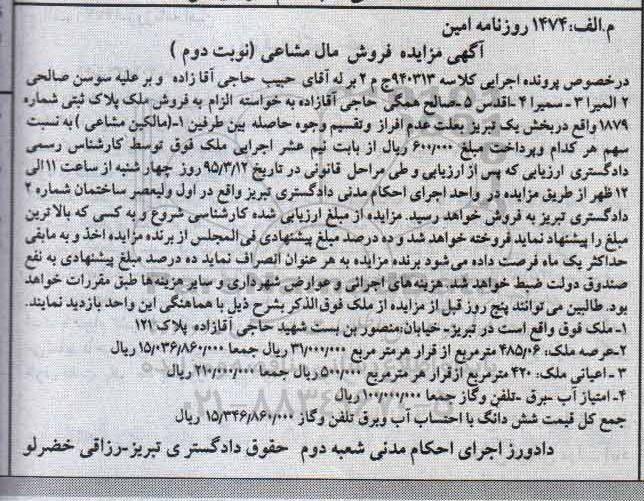 م.الف: ۱۴۷۴ روزنامه امین
آگهی مزایده فروش مال مشاعی (نوبت دوم)
درخصوص پرونده اجرایی کلاسه ۹۴۰۳۱۳ج م ۲ بر له آقای حبیب حاجی آقازاده و بر علیه سوسن صالحی
۲ المیرا ۳-سمیرا ۴-اقدس ۵-صالح همگی حاجی آقازاده به خواسته الزام به فروش ملک پلاک ثبتی شماره
۱۸۷۹ واقع دربخش یک تبریز بعلت عدم افراز وتقسیم وجوه حاصله بین طرفین ۱-(مالکین مشاعی ) به نسبت
سهم هر کدام وپرداخت مبلغ ۶۰۰/۰۰۰ ریال از بابت نیم عشر اجرایی ملک فوق توسط کارشناس رسمی
دادگستری ارزیابی که پس از ارزیابی و طی مراحل قانونی در تاریخ ۹۵/۳/۱۲ روز چهار شنبه از ساعت ۱۱ الی
۱۲ ظهر از طریق مزایده در واحد اجرای احکام مدنی دادگستری تبریز واقع در اول ولیعصر ساختمان شماره ۲
دادگستری تبریز به فروش خواهد رسید. مزایده از مبلغ ارزیابی شده کارشناسی شروع و به کسی که بالاترین
مبلغ را پیشنهاد نماید فروخته خواهد شد و ده درصد مبلغ پیشنهادی فی المجلس از برنده مزایده اخذ و به مابقی
حداکثر یک ماه فرصت داده می شود برنده مزایده به هر عنوان انصراف نماید ده درصد مبلغ پیشنهادی به نفع
صندوق دولت ضبط خواهد شد. هزینه های اجرائی و عوارض شهرداری و سایر هزینه ها طبق مقررات خواهد
بود. طالبین می توانند پنج روز قبل از مزایده از ملک فوق الذکر بشرح ذیل با هماهنگی این واحد بازدید نمایند.
۱-ملک فوق واقع است در تبریز- خیابان،منصور بن بست شهید حاجی آقازاده پلاک ۱۲۱
۲-عرصه ملک: ۴۸۵/۰۶ مترمربع از قرار هرمتر مربع ۳۱/۰۰۰/۰۰۰ ریال جمعا ۱۵/۰۳۶/۸۶۰/۰۰۰ ریال
۳-اعیانی ملک: ۴۲۰ مترمربع ازقرار هرمترمربع ۵۰۰/۰۰۰ ریال جمعا ۲۱۰/۰۰۰/۰۰۰ ریال
۴-امتیاز آب -برق -تلفن و گاز جمعا ۱۰۰/۰۰۰/۰۰۰ ریال
جمع کل قیمت شش دانگ با احتساب آب وبرق تلفن وگاز ۱۵/۳۴۶/۸۶۰/۰۰۰ ریال
دادورز اجرای احکام مدنی شعبه دوم حقوق دادگستری تبریز-رزاقی خضرلو
۰۲۱-۸۸۳۴۹۶۷۰